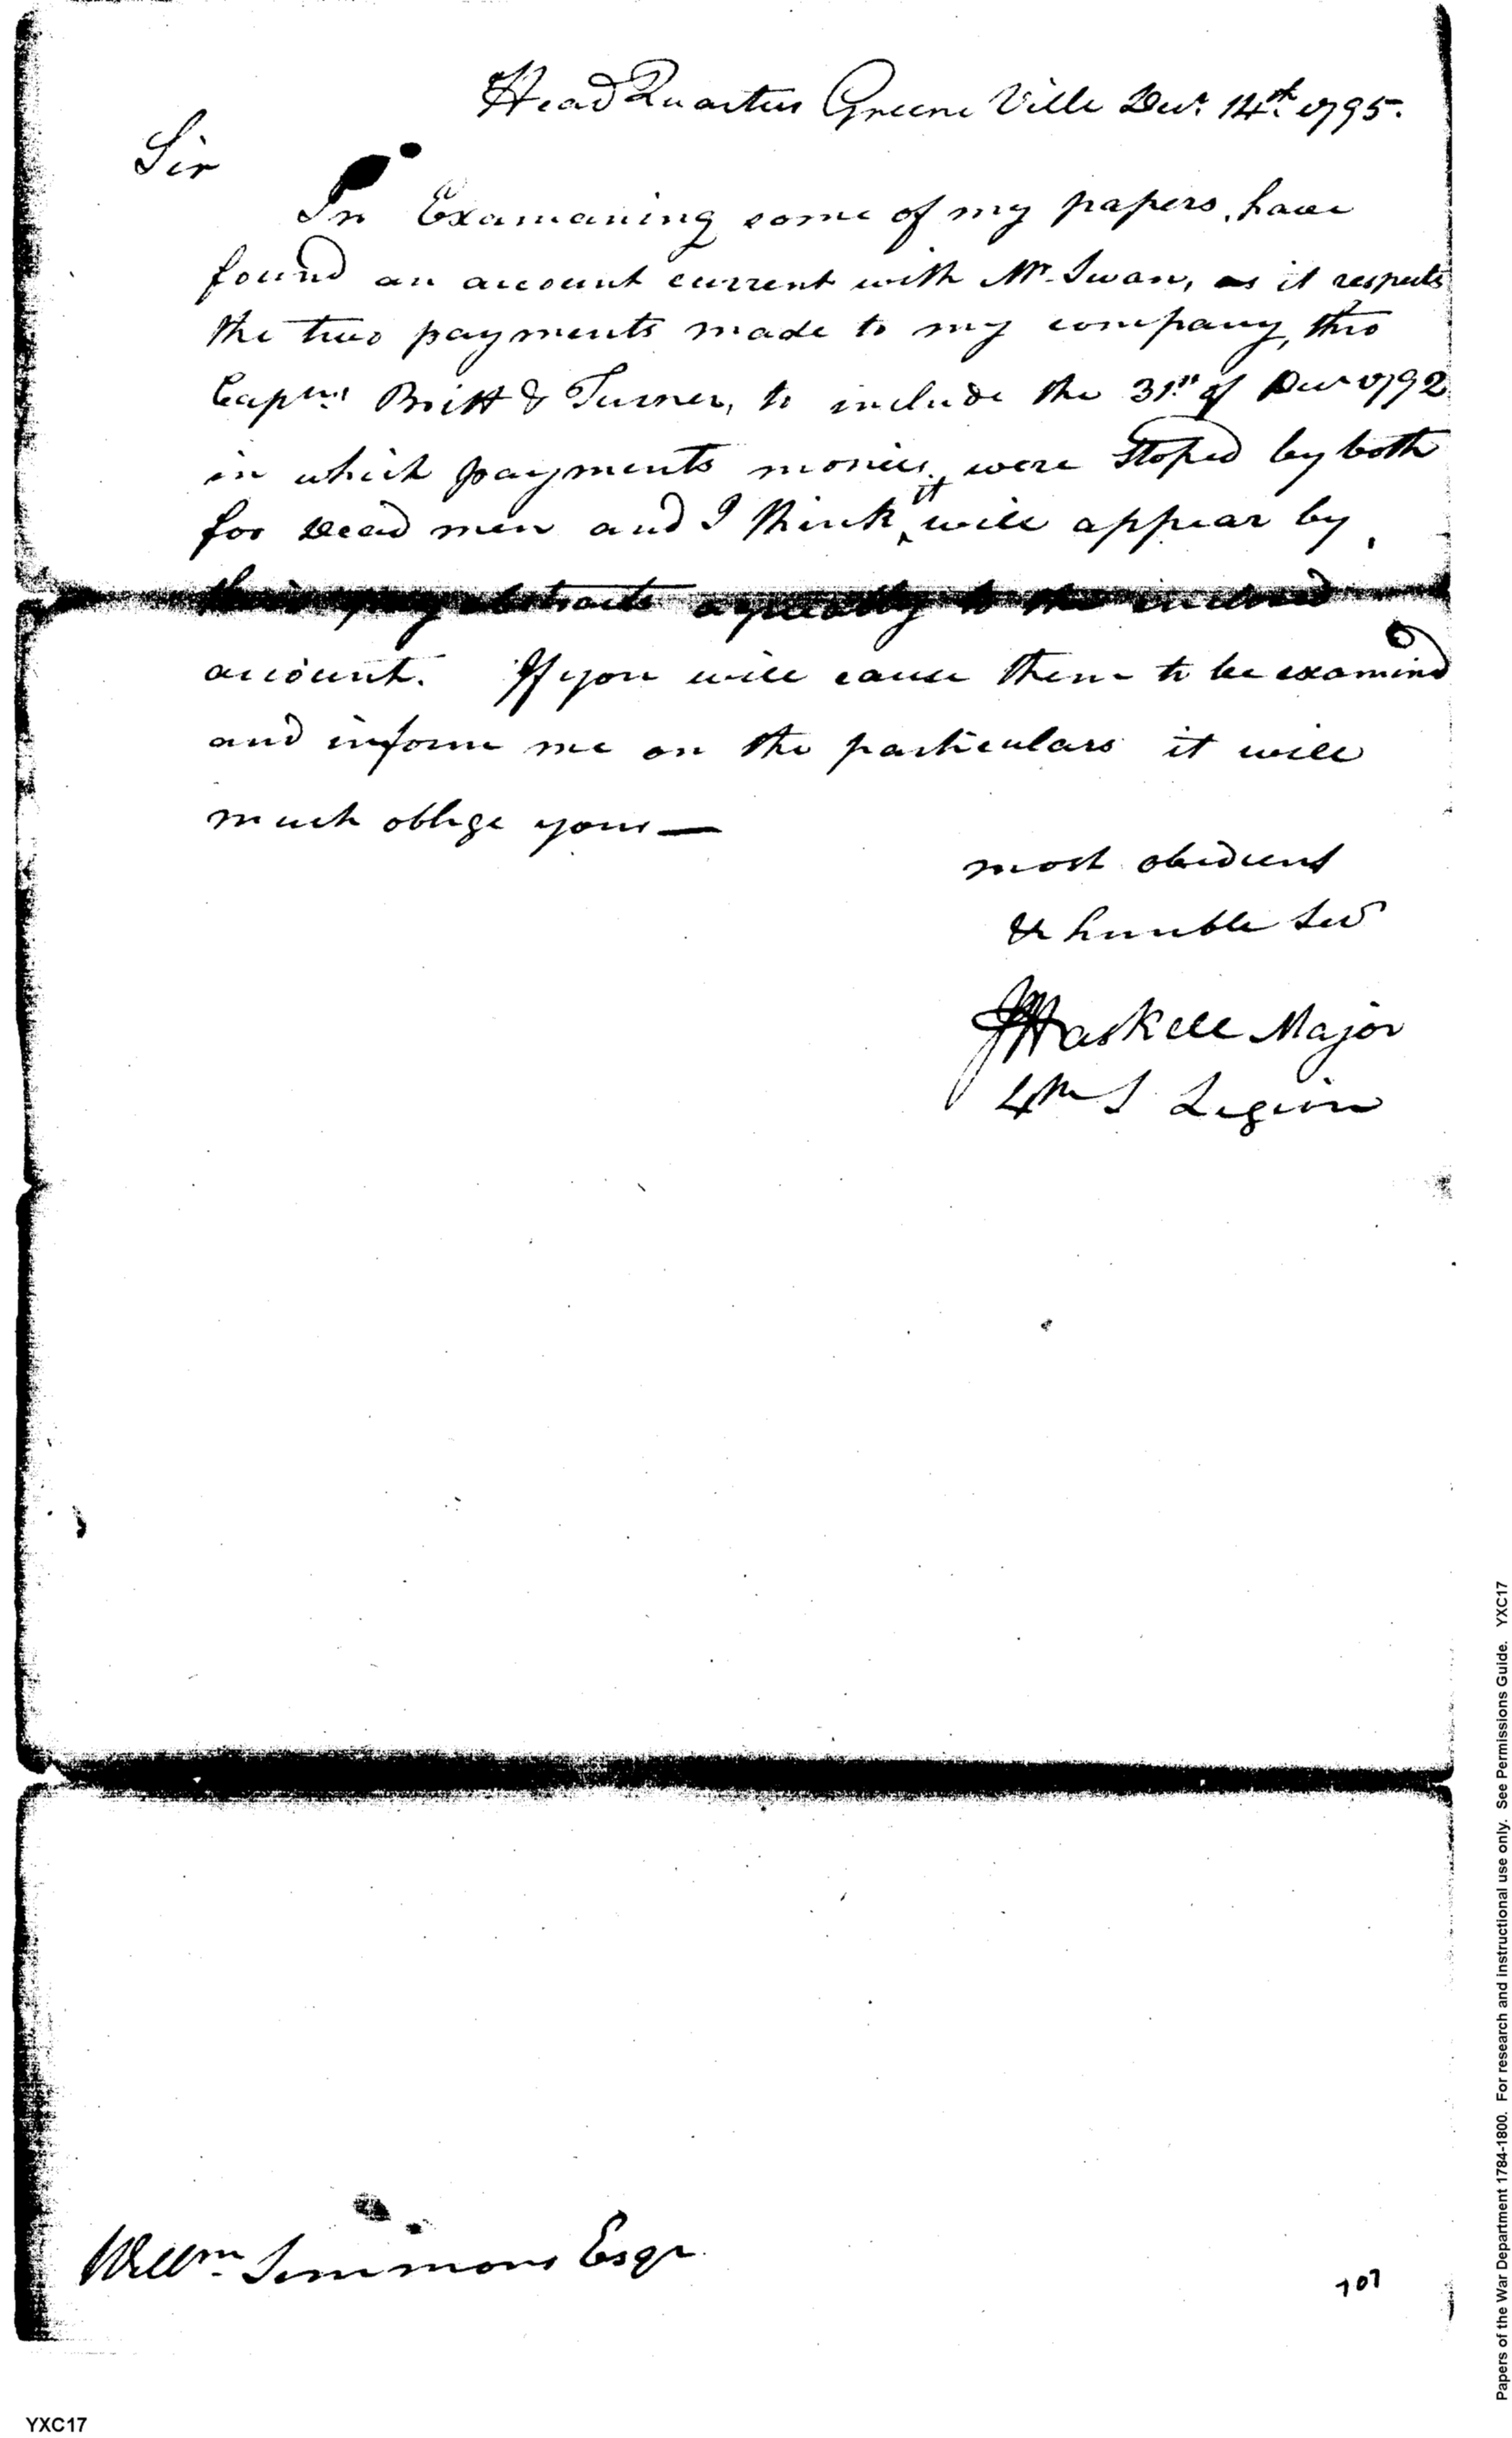 Head Quarters Greene Ville Decr. 14th. 1795.
Sir
In Examaning some of my papers, have
found an account current with Mr. Swan, as it respects
the two payments made to my company, thro
Capns. Britt & Turner, to include the 31st. of Decr 1792
in which payments monies, were stoped by both
for Dead men and I think it will appear by
their pay abstracts agreeably to the inclosed
account. If you will cause them to be examind
and inform me on the particulars it will
much oblige your—
most obedient
& humble Servt
J Haskell Major
4th S Legion
Willm. Simmons Esqr.
707
YXC17
Papers of the War Department 1784-1800. For research and instructional use only. See Permissions Guide. YXC17